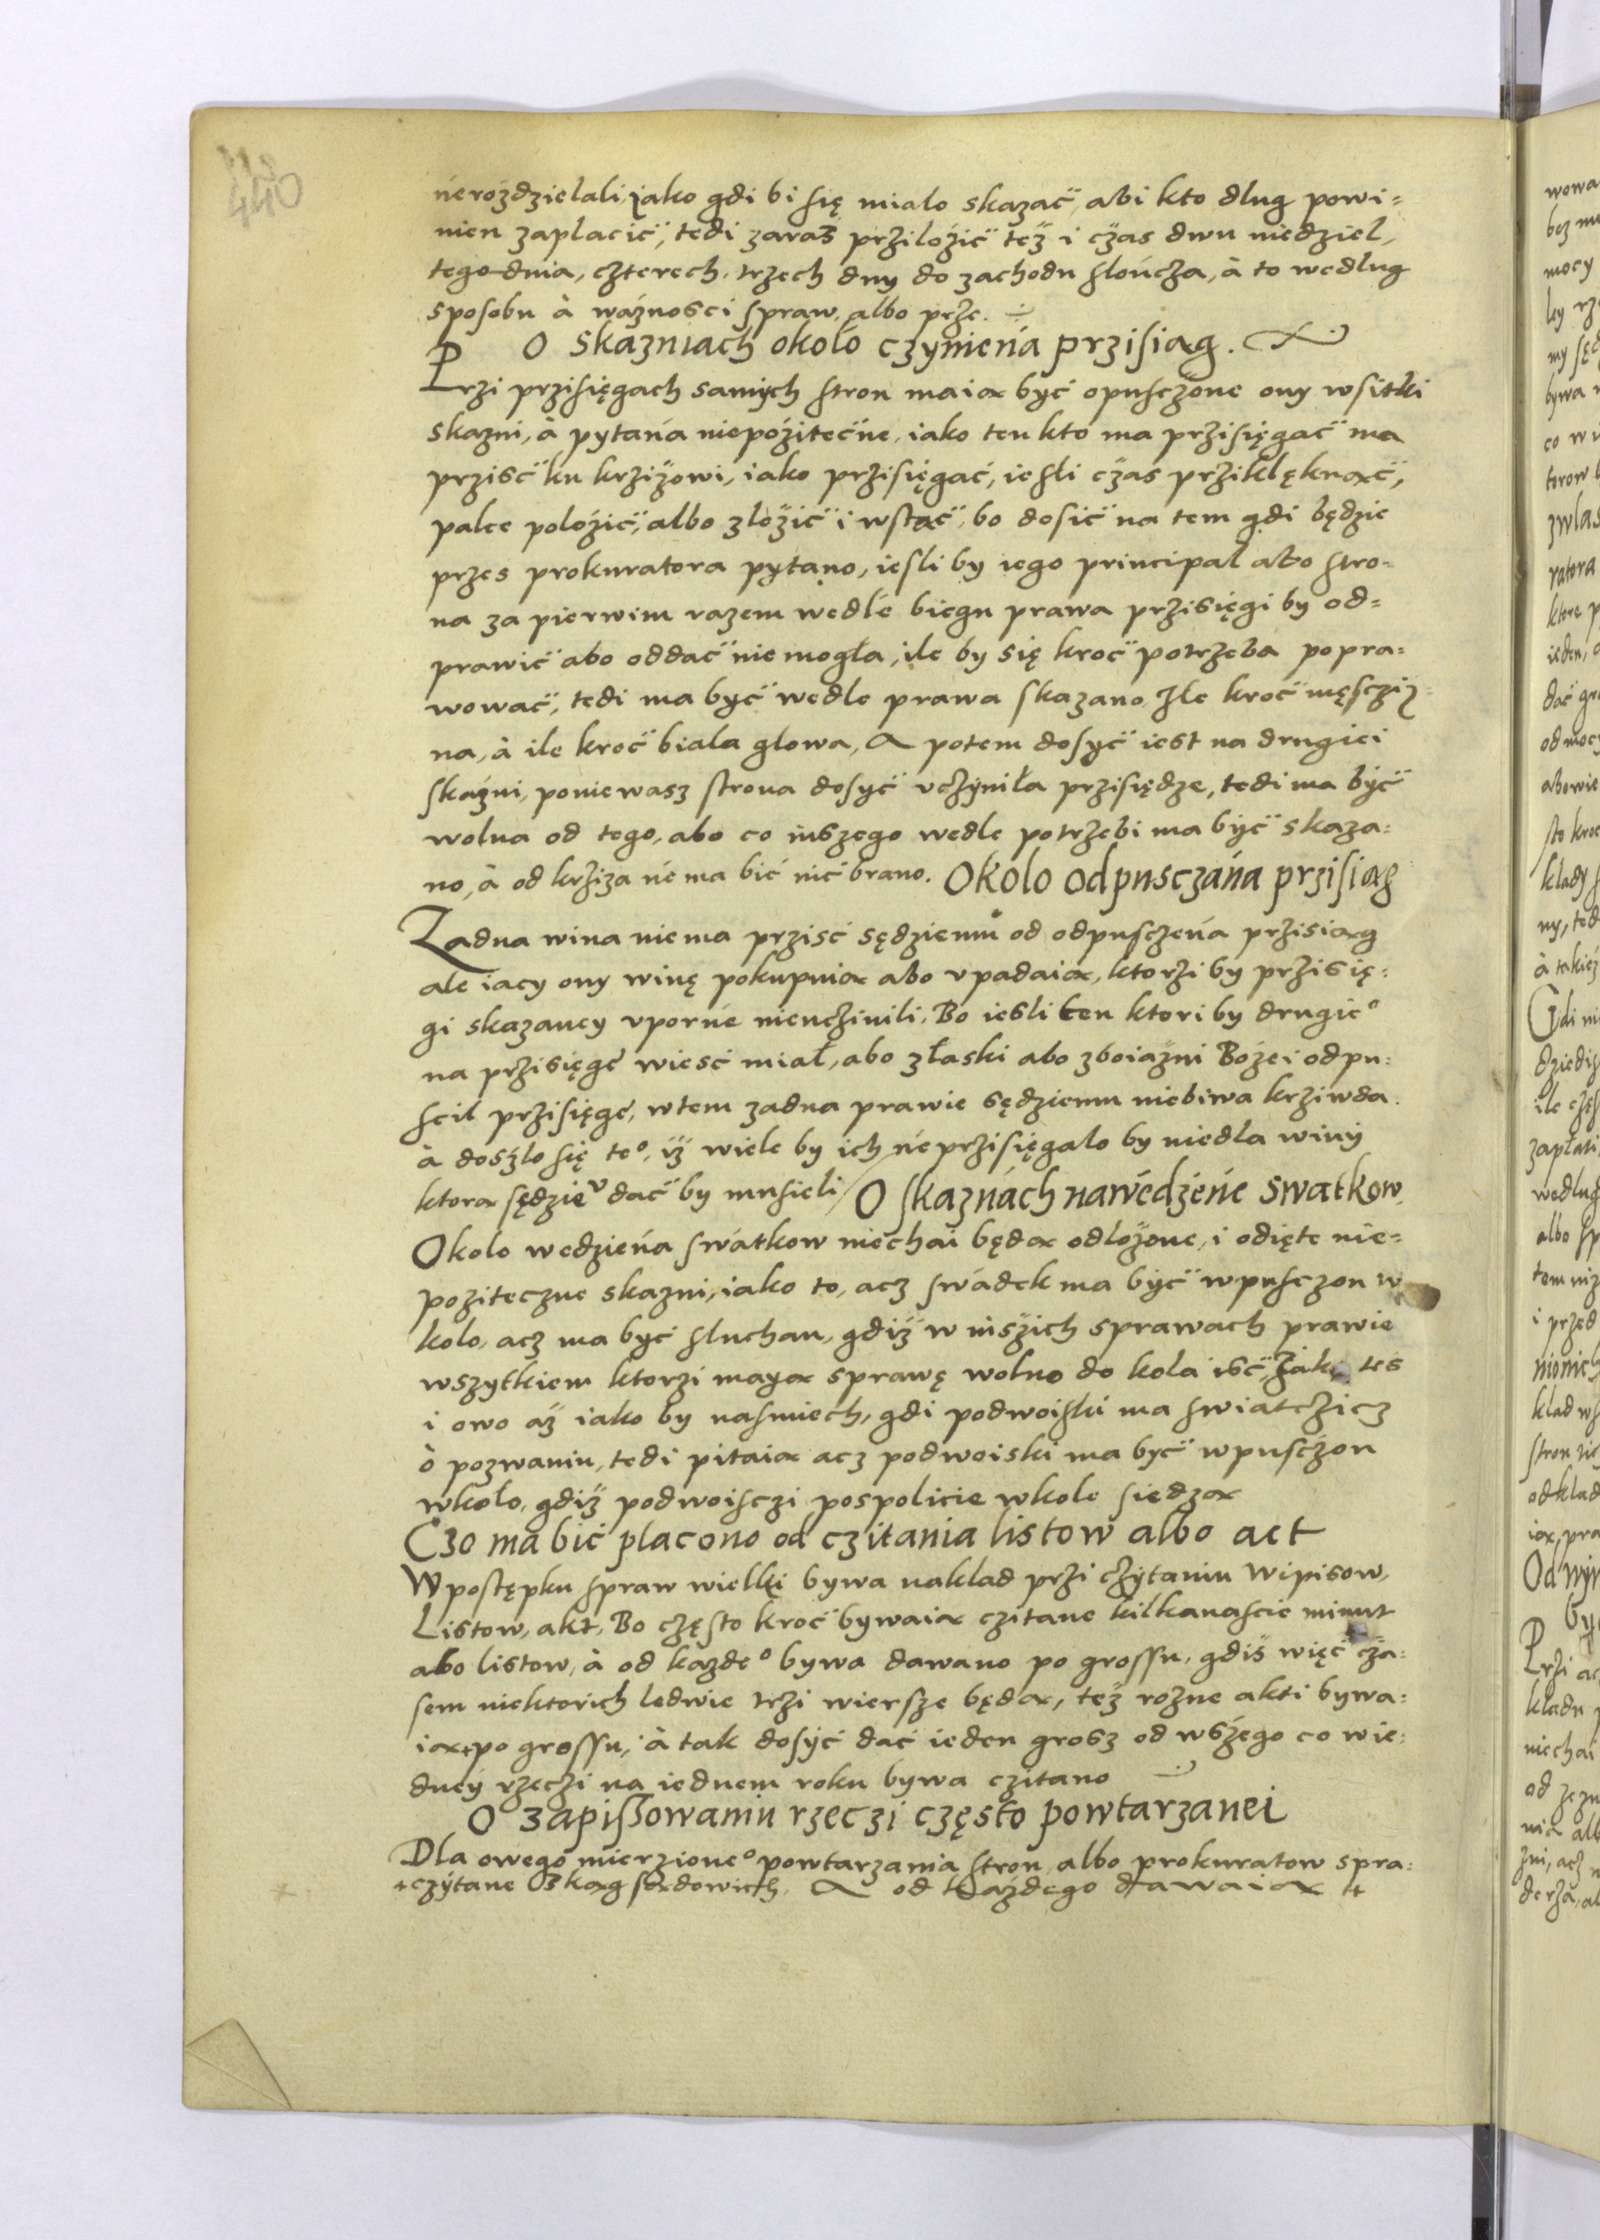 nerozdzielali, iako gdi bi się mialo skazać, abi kto dlug powi=
nien zaplacić, tedi zaras przilożić też i czas dwu niedziel,
tego dnia, czterech, trzech dny do zachodu słończa, à to wedlug
sposobu à ważnosci spraw, albo prze.
O skazniach około czynieńa przisiąg.
Przi przisięgach samych stron maią być opusczone ony wsitki
skazni, à pytańa niepożitećne, iako ten kto ma przisięgać ma
przisć ku krziżowi, iako przisięgać, iesli czas przikłęknąć,
palce położić, albo złożić i wstać, bo dosić na tem gdi będzie
przes prokuratora pytano, iesli by iego principal abo stro-
na za pierwim razem wedle biegu prawa przisięgi by od=
prawić abo oddać nie mogła, ile by się kroć potrzeba popra=
wować, tedi ma być wedle prawa skazano Ile kroć męscziz=
na, à ile kroć biala glowa, A potem dosyć iest na drugiei
skaźni, poniewasz strona dosyć uczyniła przisiędze, tedi ma być
wolna od tego, abo co inszego wedle potrzebi ma być skaza=
no, à od krziza ńe ma bić nić brano. Okolo odpusczańa przisiąg
Zadna wina niema przisć sędziemů od odpusczeńa przisiąg
ale iacy ony winę pokupuią abo upadaią, ktorzi by przisię=
gi skazaney uporńe nieuczinili. Bo iesli ten ktori by drugieº
na przisięgę wiesć miał, abo złaski abo zboiaźni Bożei odpu=
scil przisięgę, wtem zadna prawie sędziemu niebiwa krziwda.
à doszlo się teº, iż wiele by ich ńeprzisięgalo by niedla winy
ktorą sędzieᵛ dać by musieli / O skazńach nawedzeńe swatkow.
Okolo wedzieńa swátkow niechai będą odlożone, i odięte nie=
poziteczne skazni, iako to, acz swádek ma być wpusczon w
kolo, acz ma być sluchan, gdiż w niszich sprawach prawie
wszytkiem ktorzi mayą sprawę wolno do kola isć, Iako tes
i owo aż iako by nasmiech, gdi podwoiski ma swiatczicz
ò pozwaniu, tedi pitaią acz podwoiski ma być wpusczon
wkoło, gdiż podwoisczi pospolicie wkole siedzą
Czo ma bić placono od czitania listow albo act
W postępku spraw wielki bywa naklad przi czytaniu Wipisow,
Listow, akt, Bo często kroć bywaią czitane kilkanascie minut
abo listow, à od kazdeº bywa dawano po grossu, gdis więć cza=
sem niektorich ledwie trzi wiersze będą, też rozne akti bywa=
ią + po grossu, à tak dosyć dać ieden grosz od wszego co wie=
dney rzeczi na iednem roku bywa czitano
O zapissowaniu rzeczi często powtarzanei
Dla owego mierzioneº powtarzania stron albo prokuratow spra=
+ czytane z ksąg sądowich, A od każdego dawaią +